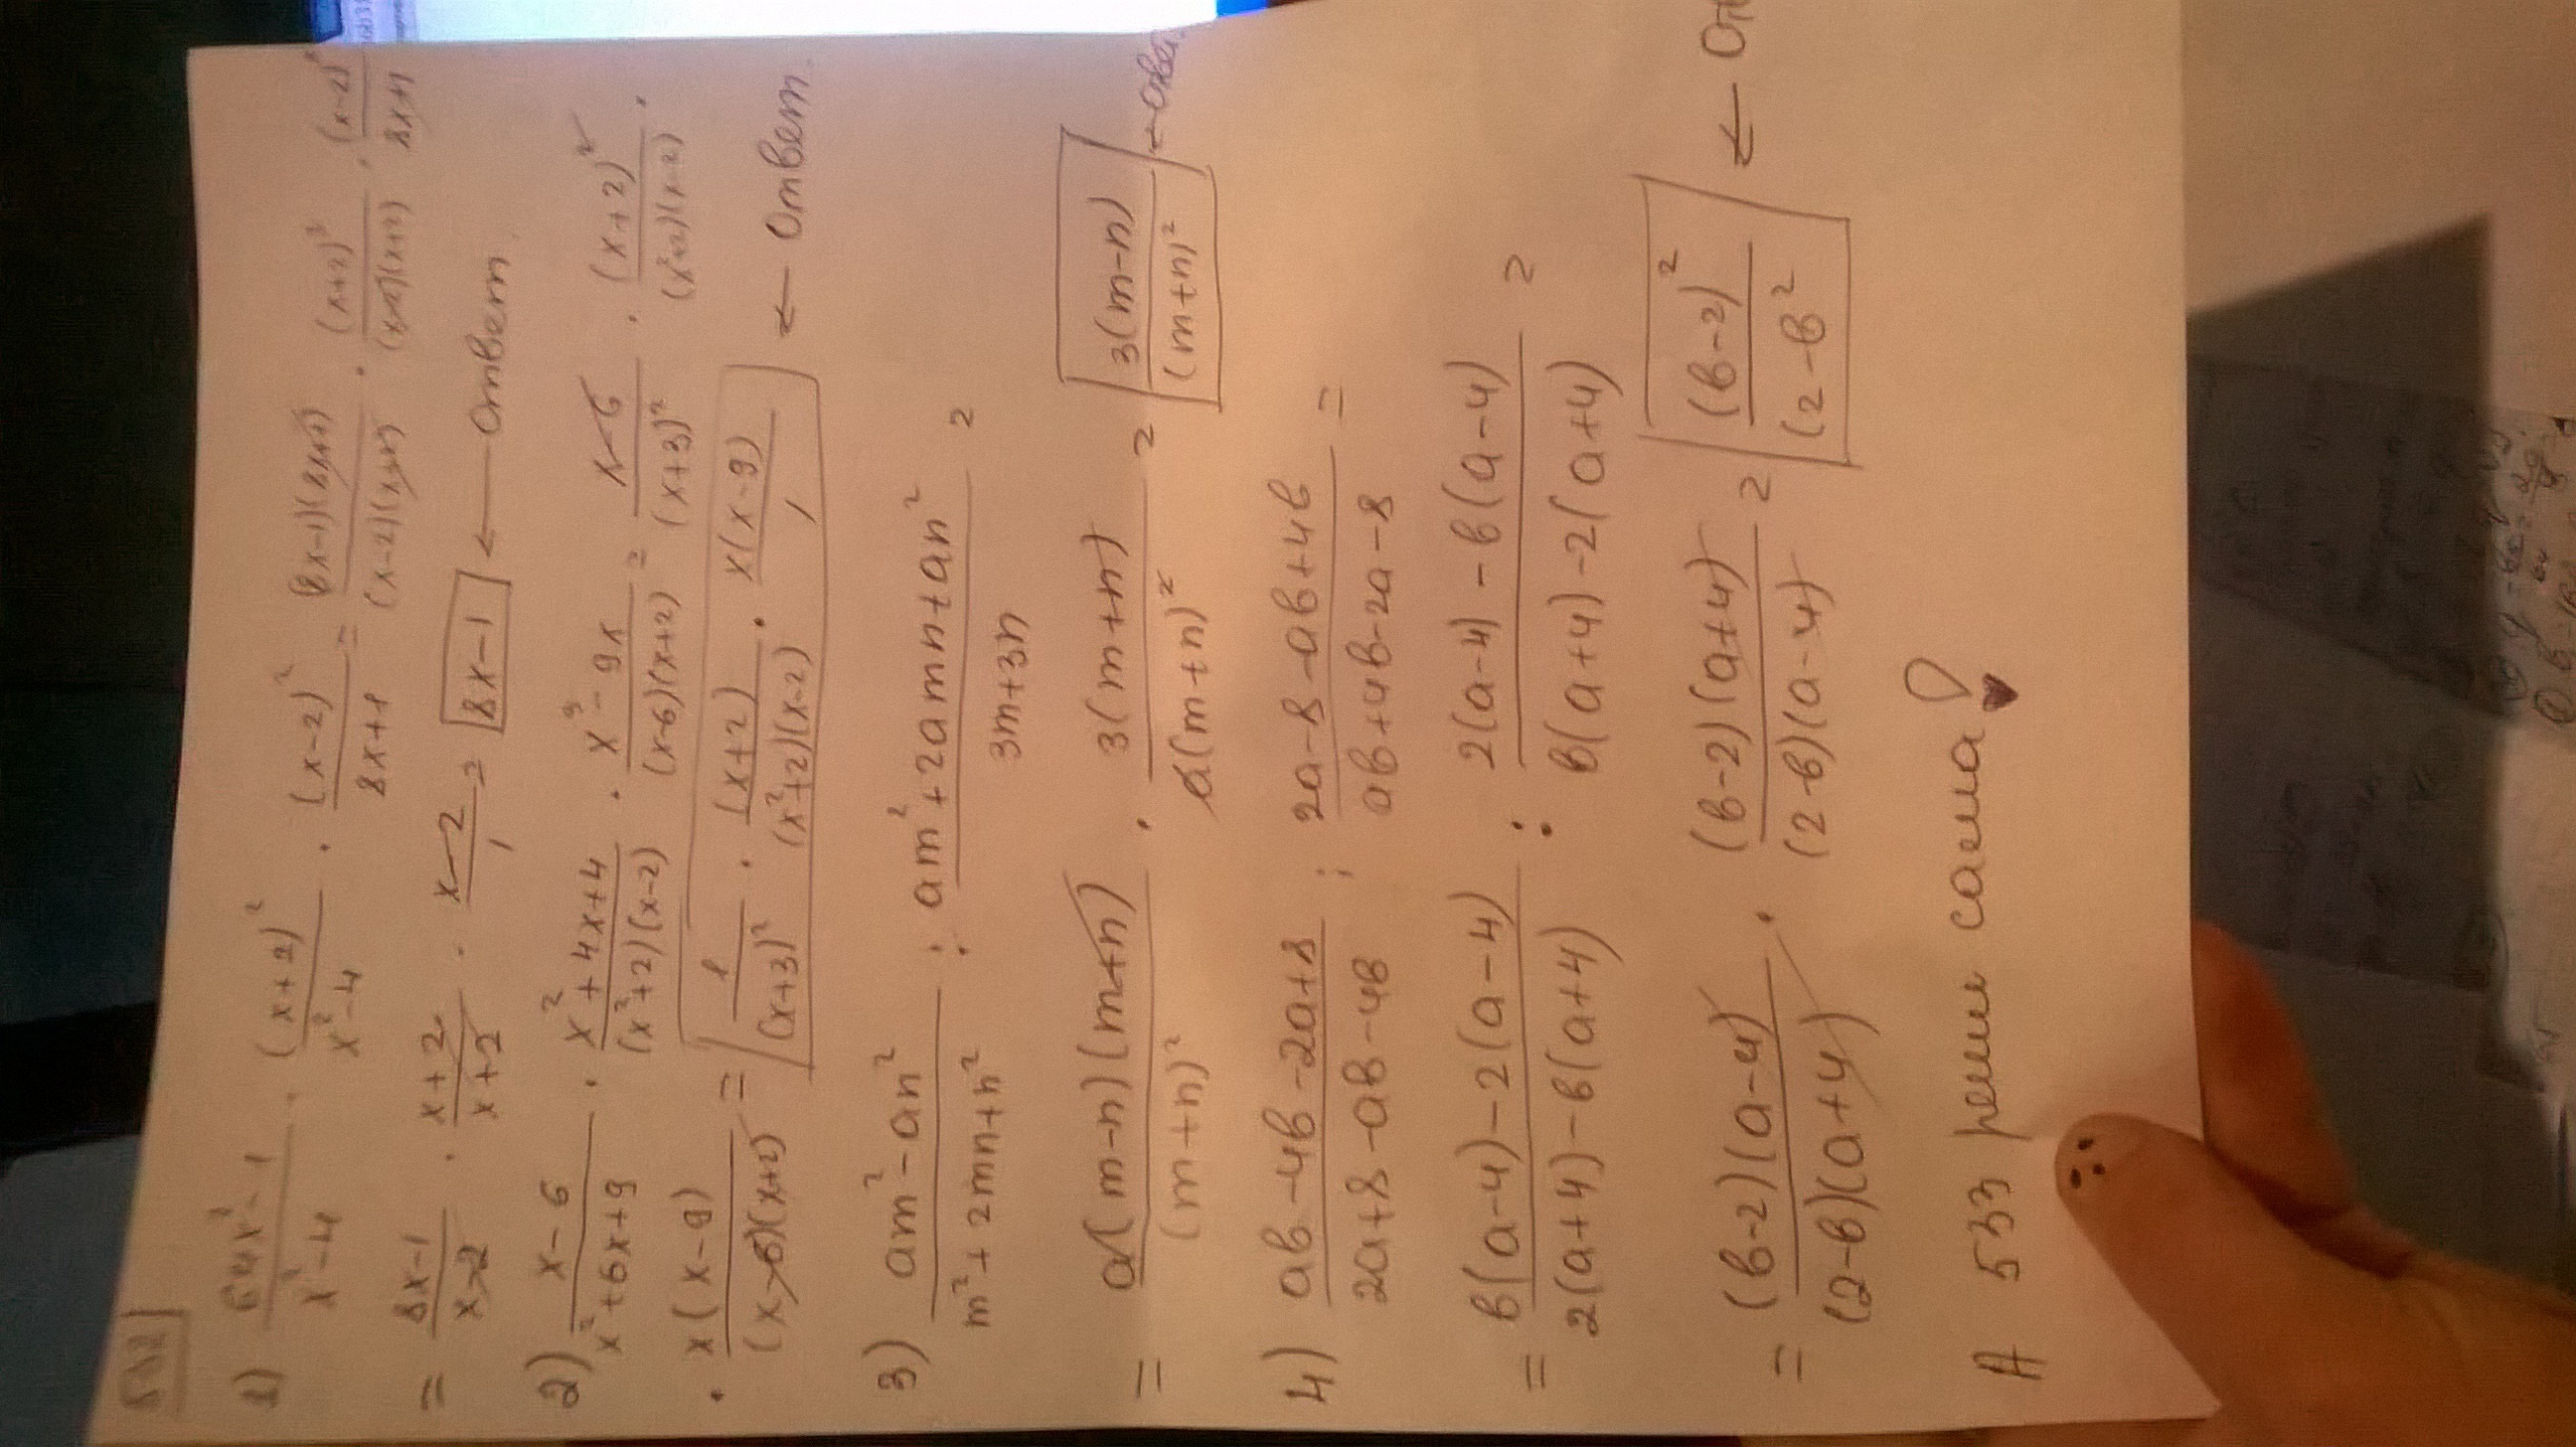 532
1) (64x² - 1)/(x² - 4) · (x+2)²/(x² - 4) · (x-2)²/(8x+1) = (8x-1)(8x+1)/((x-2)(x+2)) · (x+2)²/((x-2)(x+2)) · (x-2)²/(8x+1)
= (8x-1)/(x-2) · (x+2)/(x+2) · (x-2)/1 = 8x-1 ← Ответ.
2) (x-6)/(x²+6x+9) · (x²+4x+4)/((x²+2)(x-2)) · (x³-9x)/((x-6)(x+2)) = (x-6)/(x+3)² · (x+2)²/((x²+2)(x-2)) ·
· x(x-9)/((x-6)(x+2)) = 1/(x+3)² · (x+2)/((x²+2)(x-2)) · x(x-9)/1 ← Ответ.
3) (am² - an²)/(m²+2mn+n²) : (am²+2amn+an²)/(3m+3n) =
= a(m-n)(m+n)/(m+n)² · 3(m+n)/(a(m+n)²) = 3(m-n)/(m+n)² ←
4) (ab-4b-2a+8)/(2a+8-ab-4b) : (2a-8-ab+4b)/(ab+4b-2a-8) =
= (b(a-4)-2(a-4))/(2(a+4)-b(a+4)) : (2(a-4)-b(a-4))/(b(a+4)-2(a+4)) =
= (b-2)(a-4)/((2-b)(a+4)) · (b-2)(a+4)/((2-b)(a-4)) = (b-2)²/(2-b² ←
А 533 реши сама! ♥